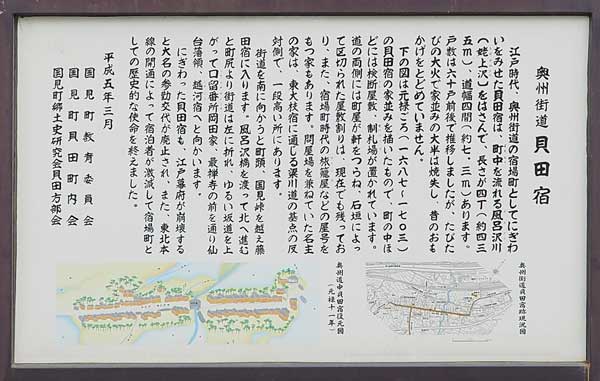 奥州街道 貝田宿
江戸時代、奥州街道の宿場町としてにぎわ
いをみせた貝田宿は、町中を流れる風呂沢川
(姥上沢)をはさんで、長さが四丁(約四三
五m)、道幅四間(約七、三m)あります。
戸数は六十戸前後で推移しましたが、たびた
びの大火で家並みの大半は焼失し、昔のおも
かげをとどめていません。
下の図は元禄ごろ(一六八七~一七〇三)
の貝田宿の家並みを描いたもので、町の中ほ
どには検断屋敷、制札場が置かれています。
道の両側には町屋が軒をつらね、石垣によっ
て区切られた屋敷割りは、現在でも残ってお
り、また、宿場町時代の旅籠屋などの屋号を
もつ家もあります。問屋場を兼ねていた名主
の家は、東大枝宿に通じる梁川道の基点の反
対側で、一段高い所にあります。
街道を南に向かうと町頭、国見峠を越え藤
田宿に入ります。風呂沢橋を渡って北へ進む
と町尻より街道は左に折れ、ゆるい坂道を上
がって口留番所岡田家、最禅寺の前を通り仙
台藩領、越河宿へと向かいます。
にぎわった貝田宿も、江戸幕府が崩壊する
と大名の参勤交代が廃止され、また、東北本
線の開通によって宿泊者が激減して宿場町と
しての歴史的な使命を終えました。
平成五年三月
国見町教育委員会
国見町貝田町内会
国見町郷土史研究会貝田方部会
奥州街道貝田宿跡現況図
奥州道中貝田宿復元図
(元禄十一年)